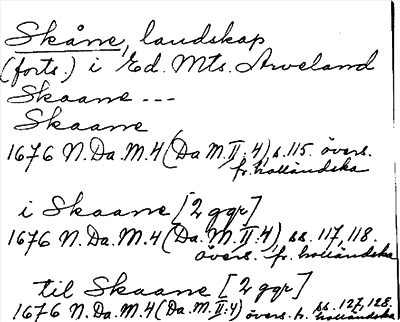 Skåne, landskap
(forts.) i Ed. Mts. Arveland
Skaane ---
Skaane
1676 N.Da.M.4 (Da M.II:4) s.115. övers.
fr. holländska
i Skaane [2 ggr]
1676 N.Da.M.4 (Da. M.II:4) ss. 117, 118.
övers. fr. holländska
til Skaane [2 ggr]
1676 N.Da.M.4 (Da.M.II:4) övers. fr. ss. 127, 128.
holländska